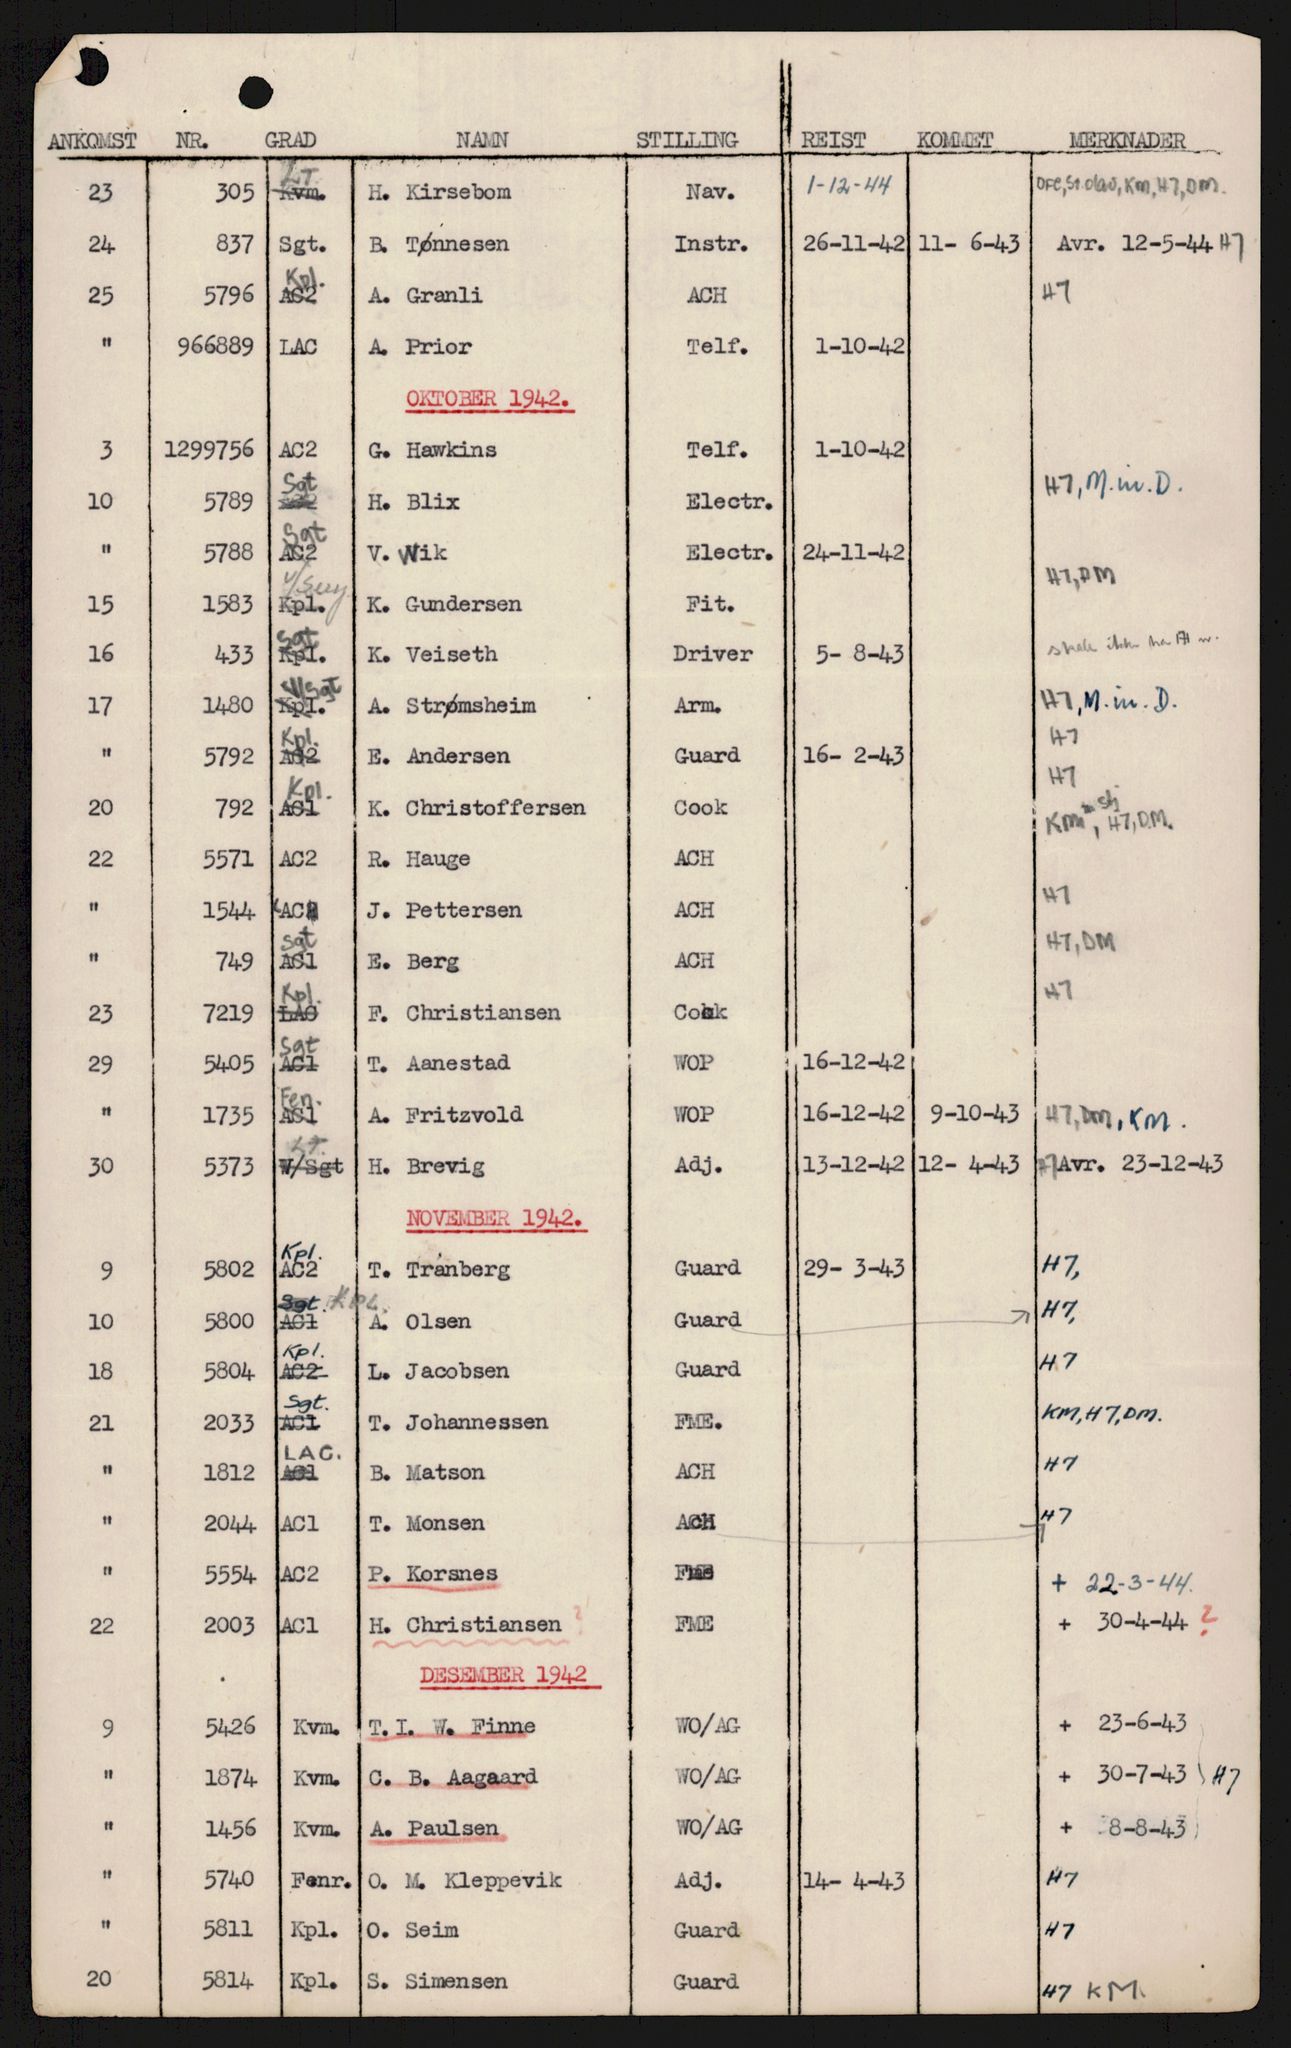 ANKOMST NR. GRAD NAMN STILLING REIST KOMMET MERKNADER
23 305 Kvm. Lt H. Kirsebom Nav. 1-12-44 DFC, St.olav, KM, H7, DM.
24 837 Sgt. B. Tønnesen Instr. 26-11-42 11- 6-43 Avr. 12-5-44 H7
25 5796 AC2 Kpl. A. Granli ACH H7
" 966889 LAC A. Prior Telf. 1-10-42
OKTOBER 1942.
3 1299756 AC2 G. Hawkins Telf. 1-10-42
10 5789 Sgt H. Blix Electr. H7, M.in.D.
" 5788 AC2 Sgt V. Wik Electr. 24-11-42
15 1583 Kpl. K. Gundersen Fit. H7, DM
16 433 Kpl. Sgt K. Veiseth Driver 5- 8-43
17 1480 Kpl. V/Sgt A. Strømsheim Arm. H7, M.in.D.
" 5792 AC2 Kpl. E. Andersen Guard 16- 2-43 H7
20 792 AC1 Kpl. K. Christoffersen Cook H7
22 5571 AC2 R. Hauge ACH KM m stj, H7, DM.
" 1544 J. Pettersen ACH H7
" 749 AC1 Sgt E. Berg ACH H7, DM
23 7219 LAC Kpl. F. Christiansen Cook H7
29 5405 AC1 Sgt T. Aanestad WOP 16-12-42
" 1735 AS1 Fen. A. Fritzvold WOP 16-12-42 9-10-43 H7, DM, KM.
30 5373 W/Sgt Lt. H. Brevig Adj. 13-12-42 12- 4-43 H7 Avr. 23-12-43
NOVEMBER 1942.
9 5802 AC2 Kpl. T. Tranberg Guard 29- 3-43 H7,
10 5800 AC1 Sgt. KPL. A. Olsen Guard H7,
18 5804 AC2 Kpl. L. Jacobsen Guard H7
21 2033 AC1 Sgt. T. Johannessen FME. KM, H7, DM.
" 1812 AC1 LAC. B. Matson ACH H7
" 2044 AC1 T. Monsen ACH H7
" 5554 AC2 P. Korsnes Fme + 22-3-44.
22 2003 AC1 H. Christiansen ? FME + 30-4-44 ?
DESEMBER 1942
9 5426 Kvm. T. I. W. Finne WO/AG + 23-6-43
" 1874 Kvm. C. B. Aagaard WO/AG + 30-7-43 H7
" 1456 Kvm. A. Paulsen WO/AG + 8-8-43
" 5740 Fenr. O. M. Kleppevik Adj. 14- 4-43 H7
" 5811 Kpl. O. Seim Guard H7
20 5814 Kpl. S. Simensen Guard H7 KM.